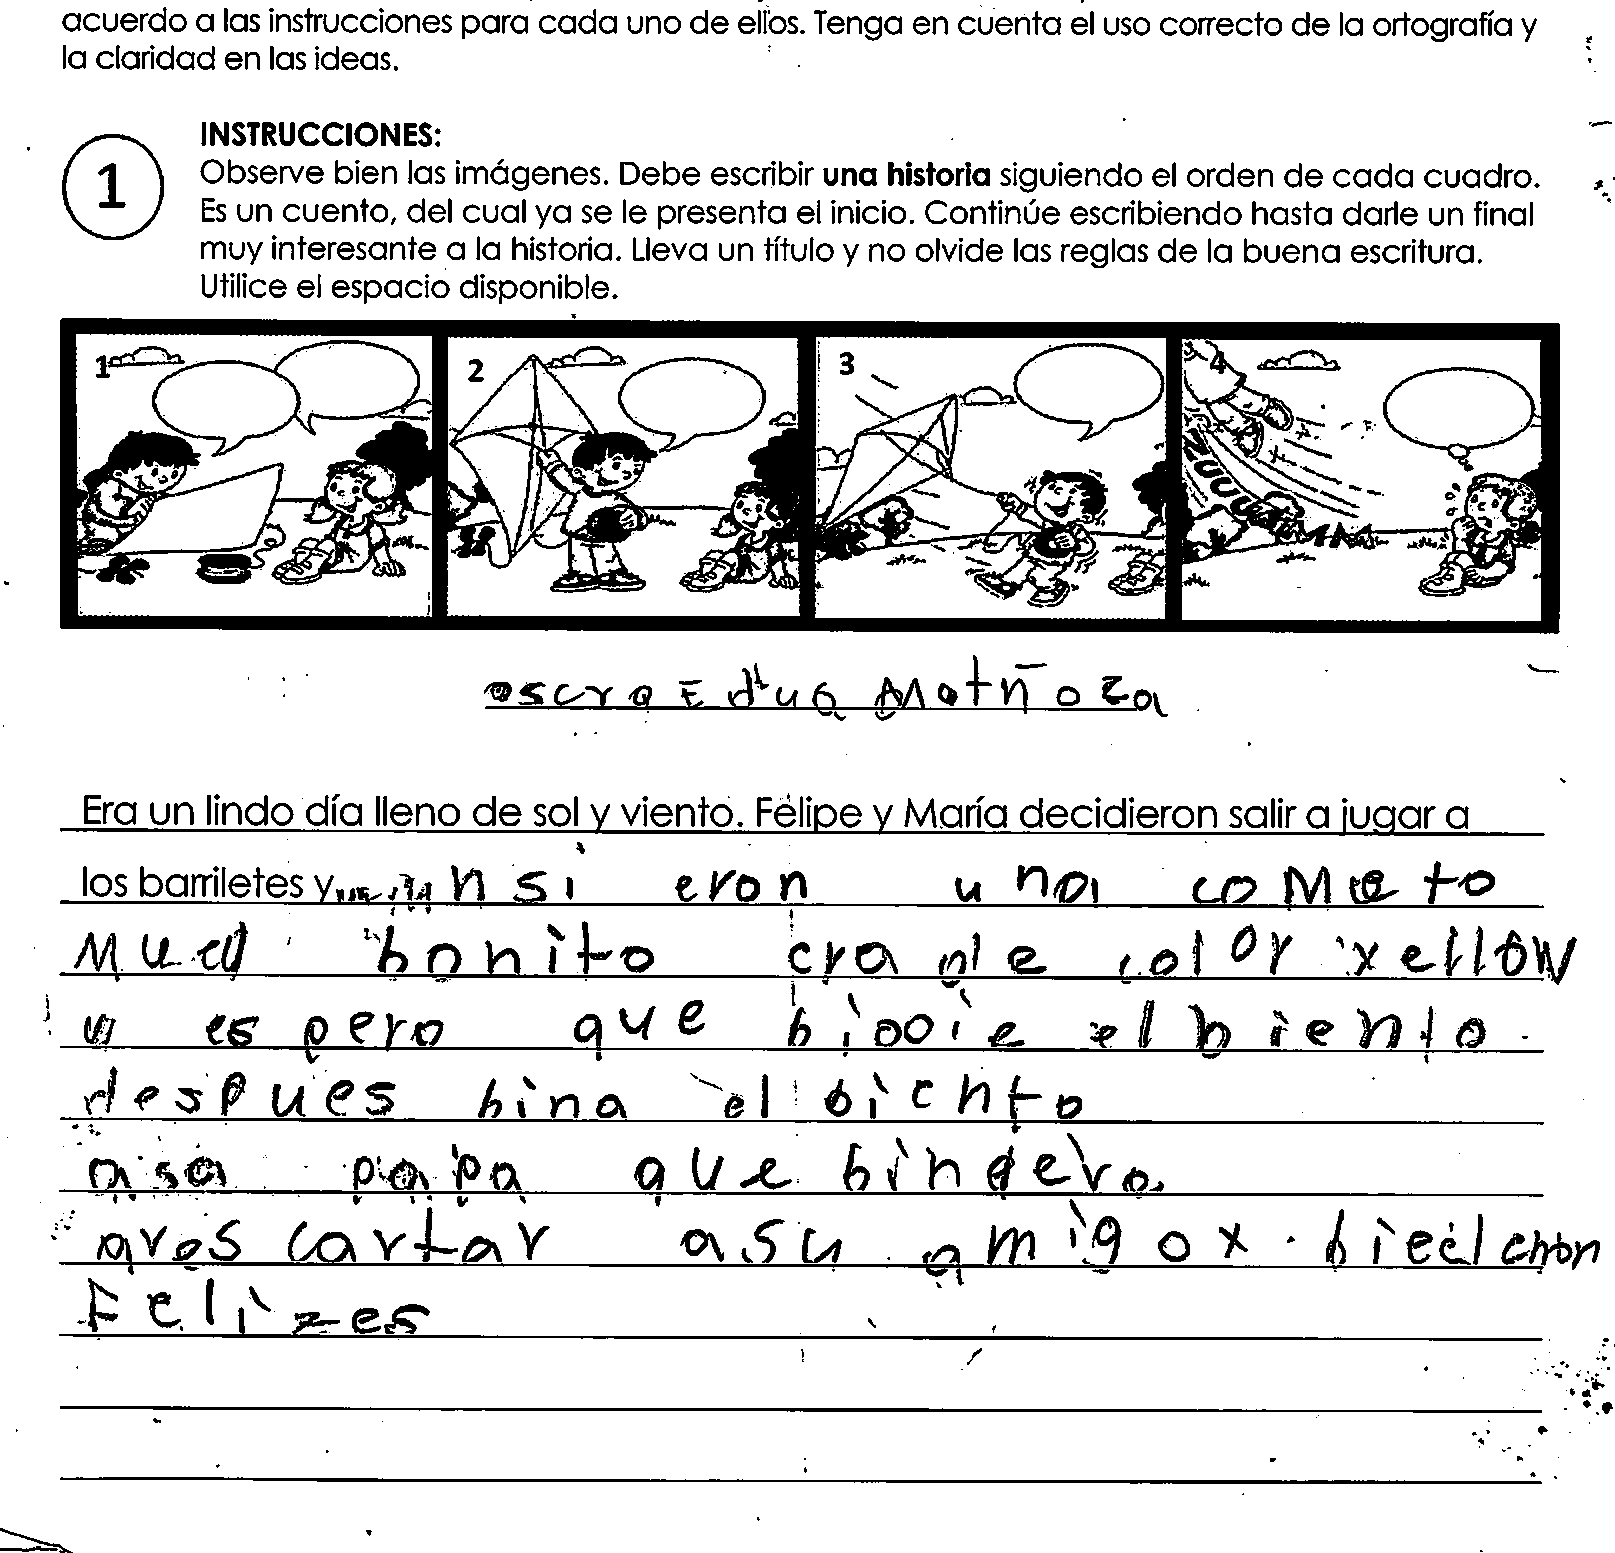 acuerdo a las instrucciones para cada uno de ellos. Tenga en cuenta el uso correcto de la ortografía y
la claridad en las ideas.
1
INSTRUCCIONES:
Observe bien las imágenes. Debe escribir una historia siguiendo el orden de cada cuadro.
Es un cuento, del cual ya se le presenta el inicio. Continúe escribiendo hasta darle un final
muy interesante a la historia. Lleva un título y no olvide las reglas de la buena escritura.
Utilice el espacio disponible.
1 2 3 4
ZUUU
Era un lindo día lleno de sol y viento. Felipe y María decidieron salir a jugar a
los barriletes y... eron una cometo
bonito era de color xellow
es pero que el biento.
despues bina el biento
papa que
a su amigox.
Felizes